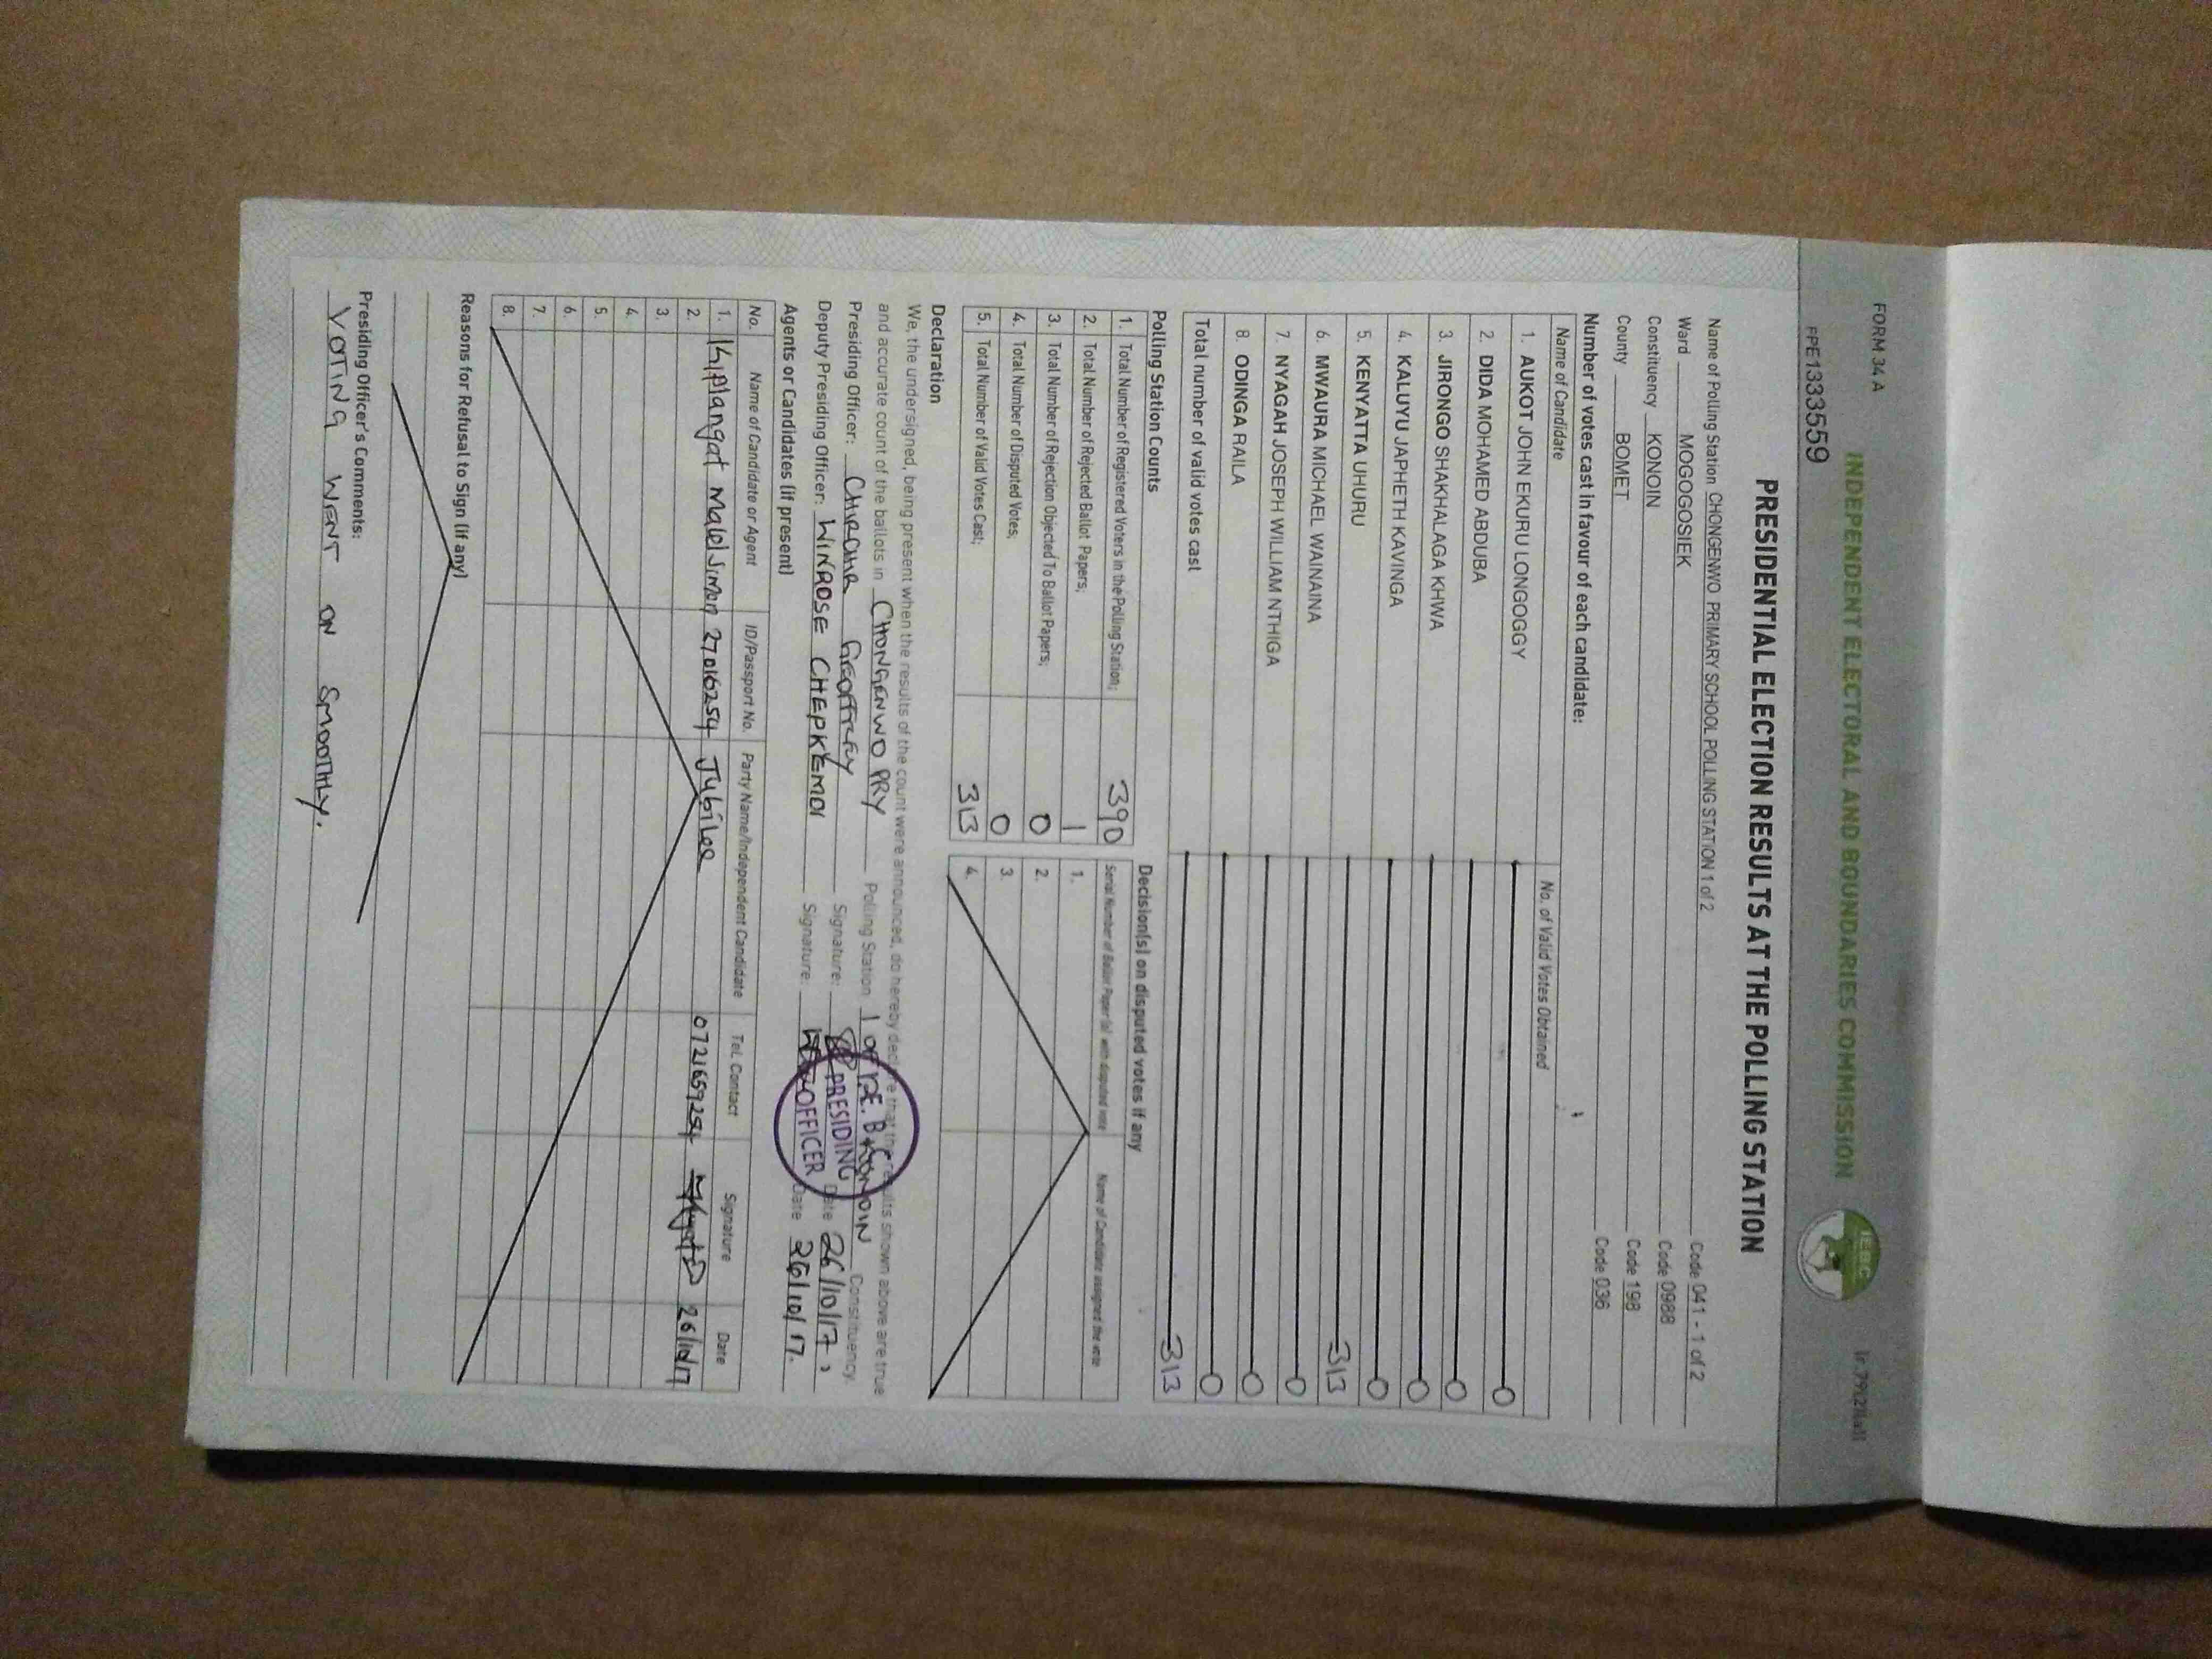 FORM 34 A
INDEPENDENT ELECTORAL AND BOUNDARIES COMMISSION
IEBC
PPE1333559
PRESIDENTIAL ELECTION RESULTS AT THE POLLING STATION
Name of Polling Station CHONGENWO PRIMARY SCHOOL POLLING STATION 1 of 2 Code 041 - 1 of 2
Ward MOGOGOSIEK Code 0988
Constituency KONOIN Code 198
County BOMET Code 036
Number of votes cast in favour of each candidate:
Name of Candidate No. of Valid Votes Obtained
1. AUKOT JOHN EKURU LONGOGGY 0
2. DIDA MOHAMED ABDUBA 0
3. JIRONGO SHAKHALAGA KHWA 0
4. KALUYU JAPHETH KAVINGA 0
5. KENYATTA UHURU 313
6. MWAURA MICHAEL WAINAINA 0
7. NYAGAH JOSEPH WILLIAM NTHIGA 0
8. ODINGA RAILA 0
Total number of valid votes cast 313
Polling Station Counts
1. Total Number of Registered Voters in the Polling Station; 390
2. Total Number of Rejected Ballot Papers; 1
3. Total Number of Rejection Objected To Ballot Papers; 0
4. Total Number of Disputed Votes; 0
5. Total Number of Valid Votes Cast; 313
Decision(s) on disputed votes if any
Serial Number of Ballot Paper(s) with disputed vote Name of Candidate assigned the vote
1.
2.
3.
4.
Declaration
We, the undersigned, being present when the results of the count were announced, do hereby declare that the results shown above are true
and accurate count of the ballots in CHONGENWO PRY Polling Station 1 OF 2 KONOIN Constituency.
Presiding Officer: CHIRCHIR GEOFFREY Signature: Date 26/10/17
Deputy Presiding Officer: WINROSE CHEPKEMOI Signature: Date 26/10/17.
PRESIDING
OFFICER
Agents or Candidates (if present)
No. Name of Candidate or Agent ID/Passport No. Party Name/Independent Candidate Tel. Contact Signature Date
1. Kiplangat Malel Simon 27016254 Jubilee 0721659254 26/10/17
2.
3.
4.
5.
6.
7.
8.
Reasons for Refusal to Sign (if any)
Presiding Officer's Comments:
VOTING WENT ON SMOOTHLY.